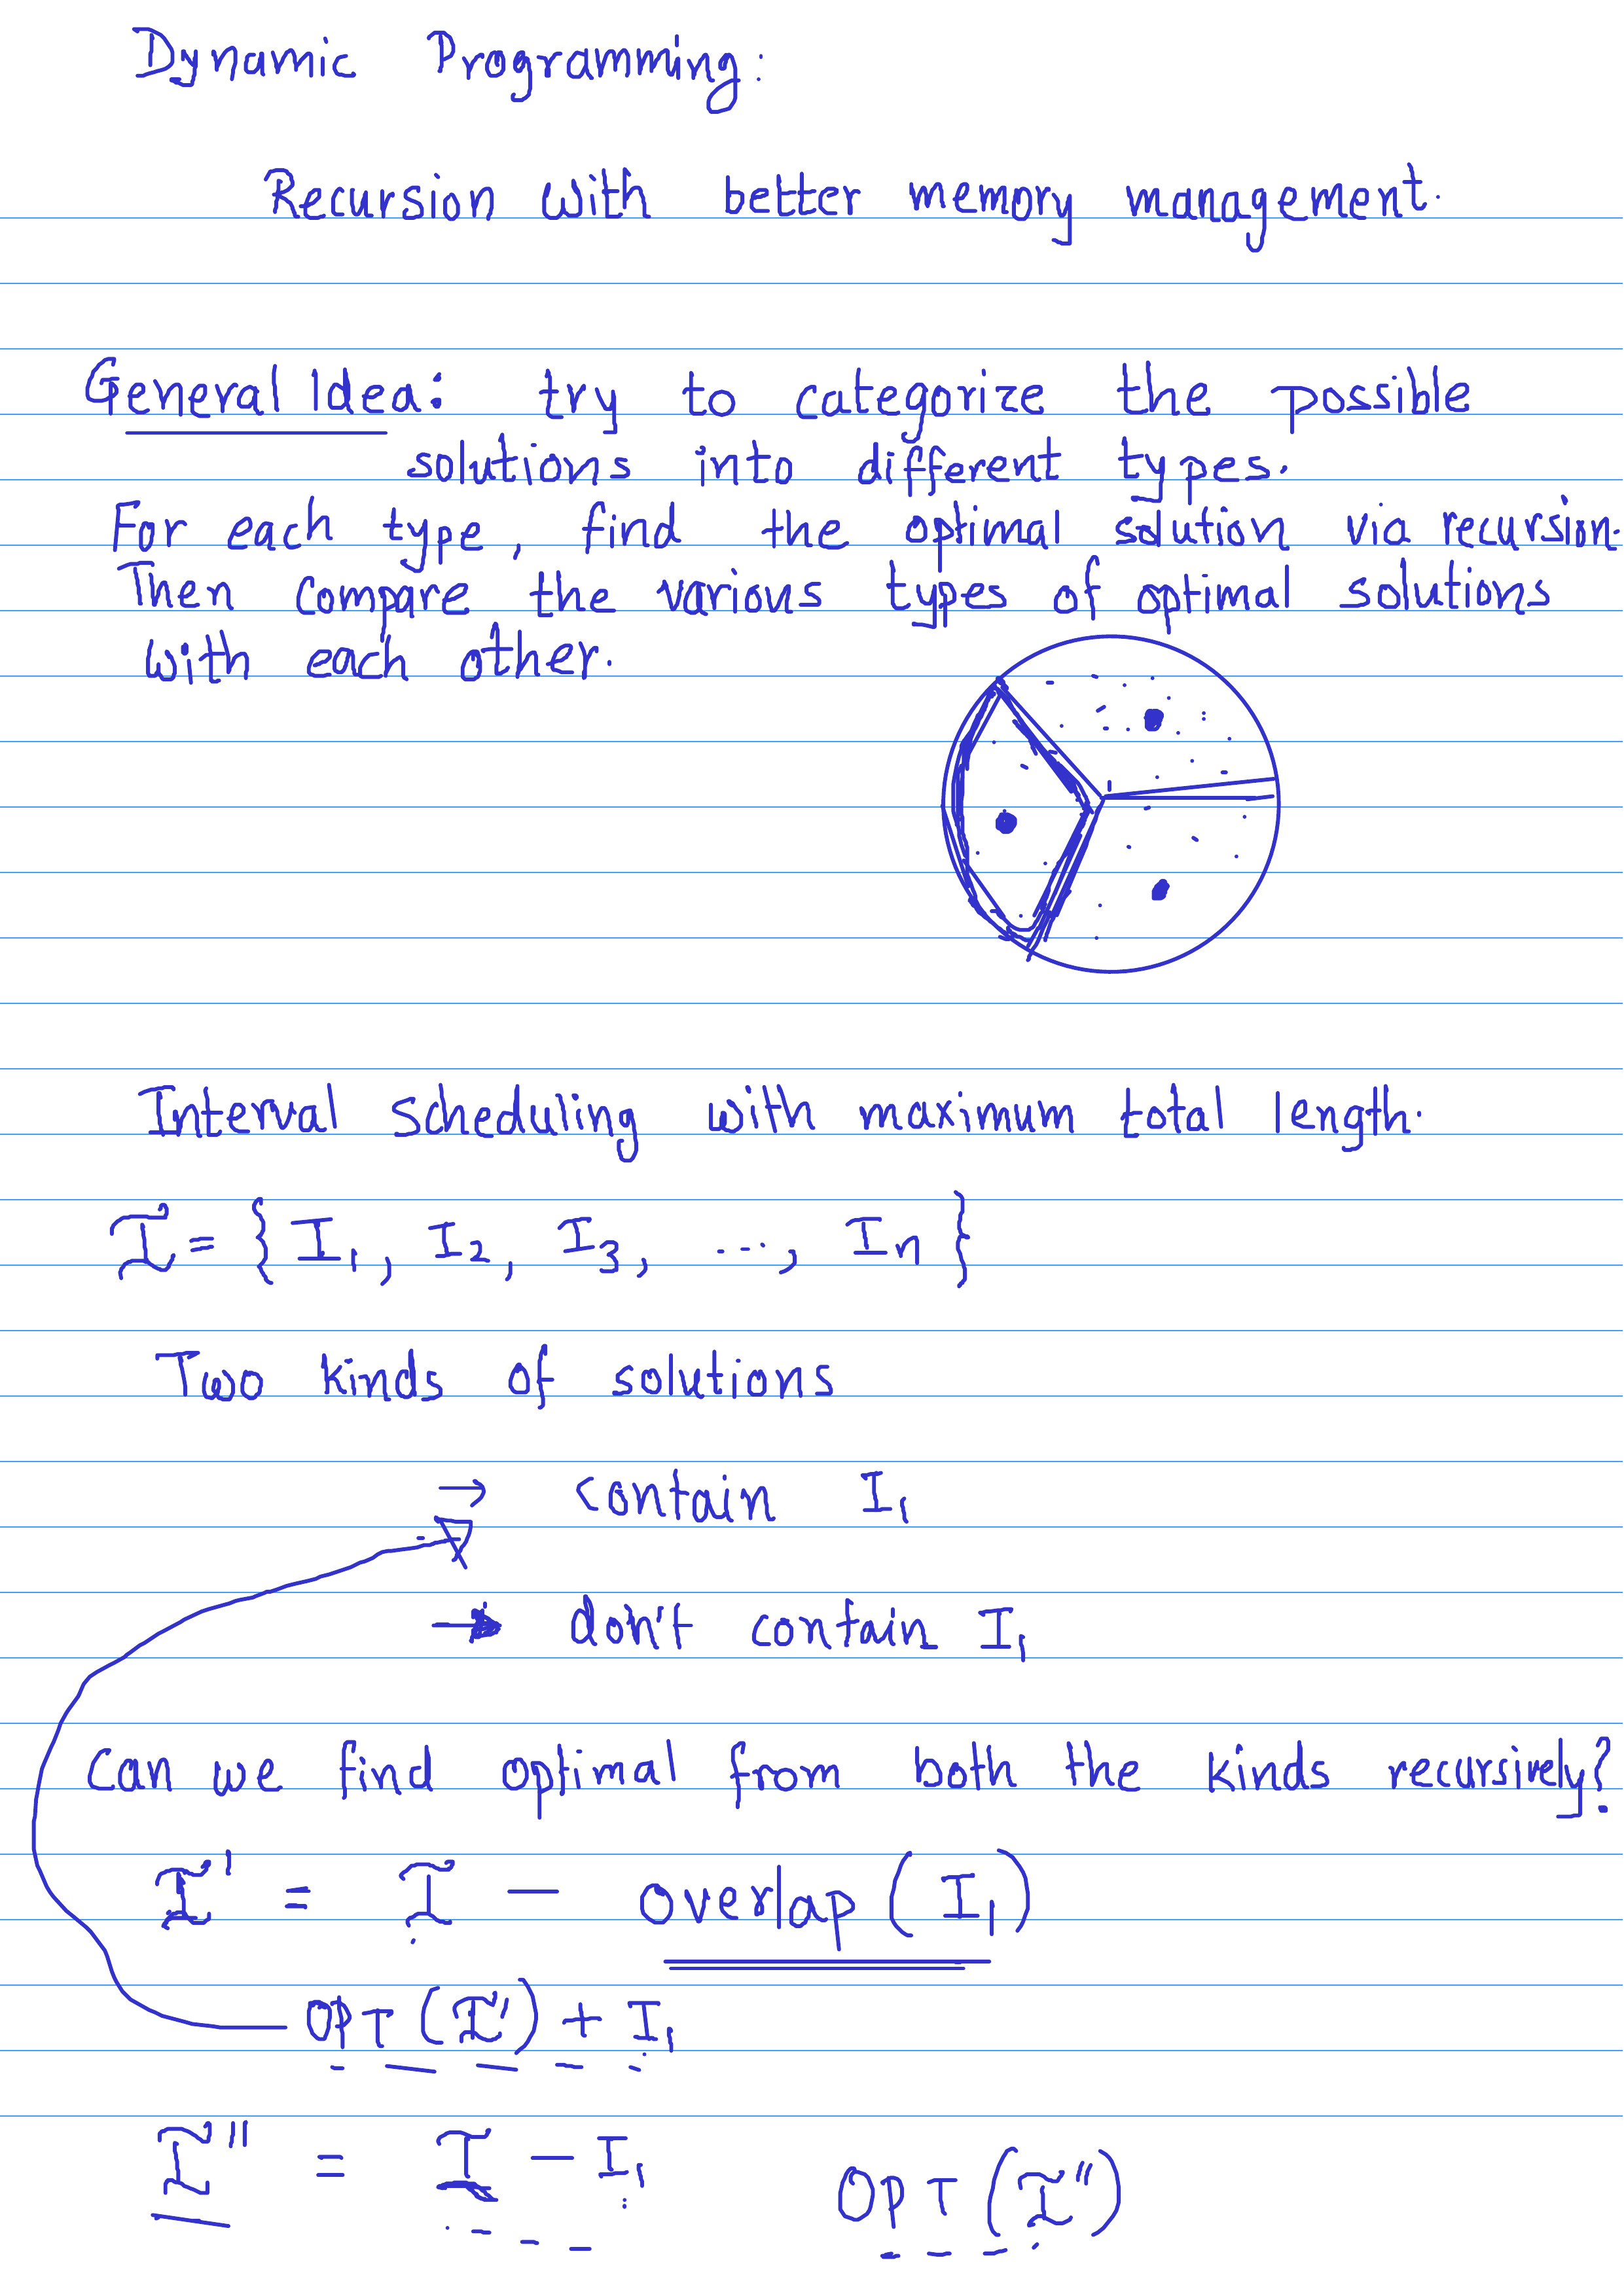 Dynamic Programming:
Recursion with better memory management.
General Idea: try to categorize the possible
solutions into different types.
For each type, find the optimal solution via recursion.
Then compare the various types of optimal solutions
with each other.
Interval scheduling with maximum total length.
I = { I₁, I₂, I₃, ..., Iₙ }
Two kinds of solutions
→ contain I₁
→ don't contain I₁
Can we find optimal from both the kinds recursively?
I' = I - overlap(I₁)
OPT(I') + I₁
I'' = I - I₁ OPT(I'')